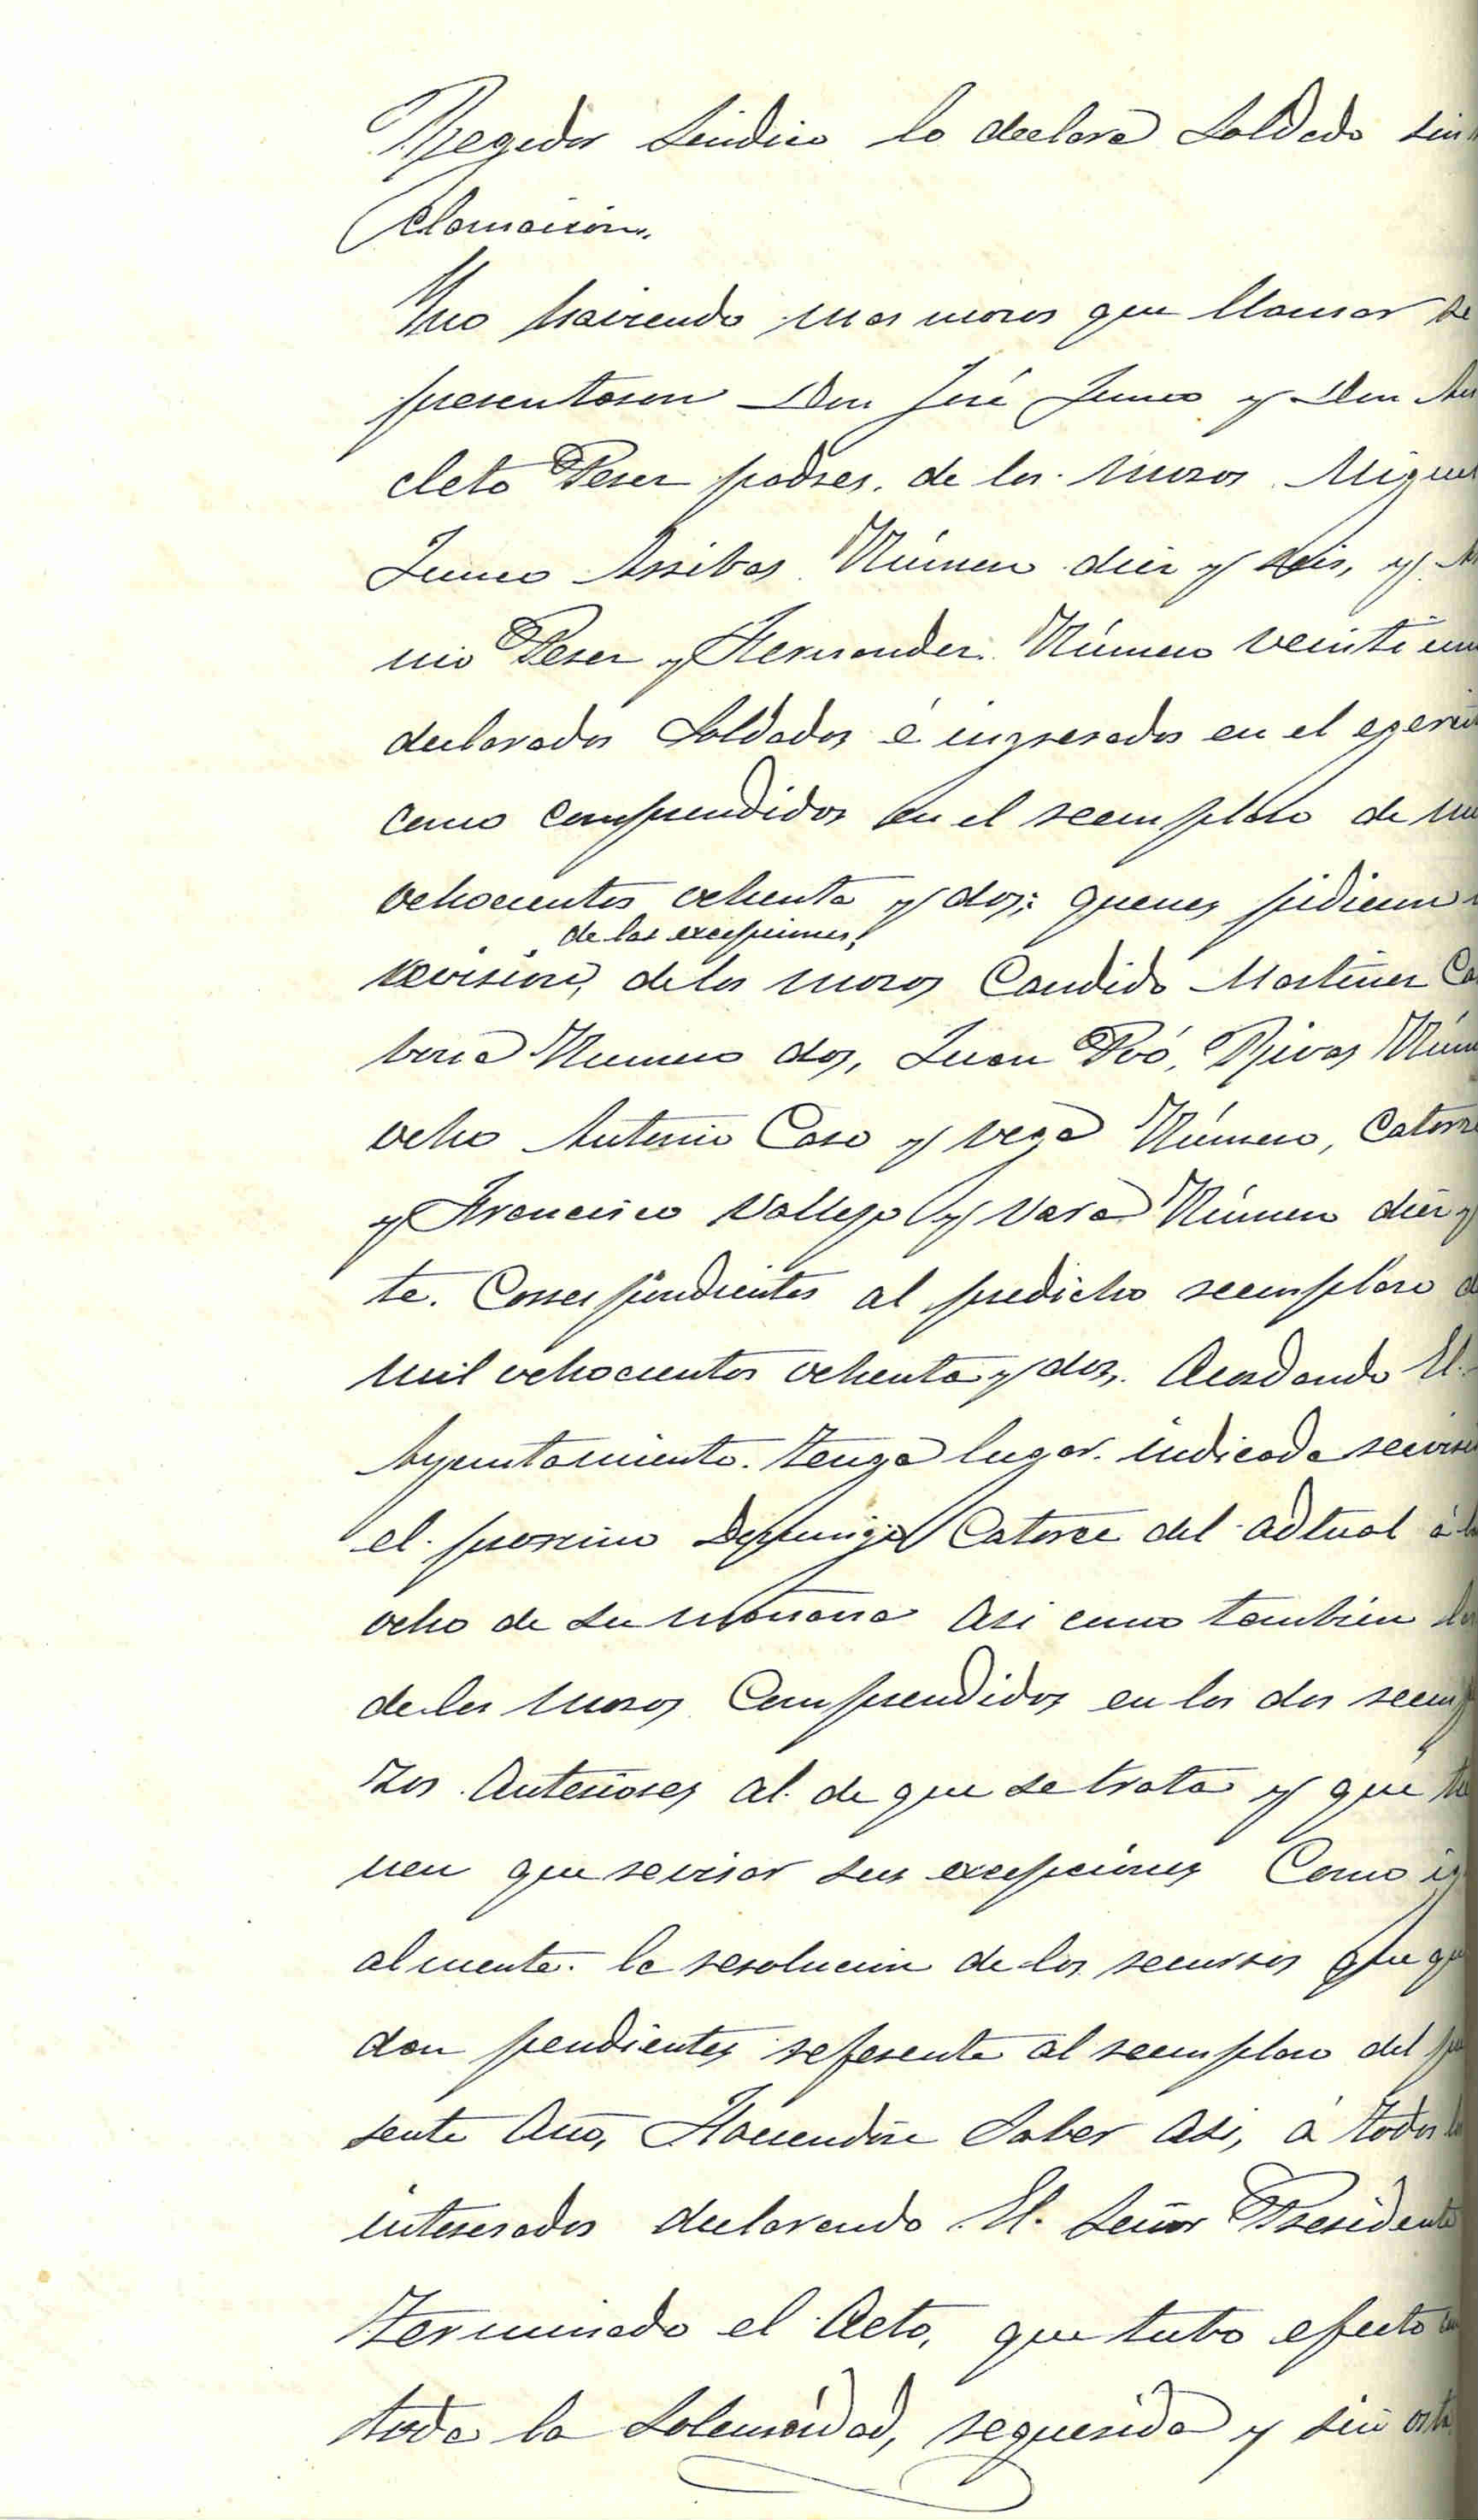 Regidor Sindico lo declara Soldado sin
clamacion.
Y no haviendo mas mozos que llamar se
presentaron Don José Junco y Don An
cleto Perez padres de los mozos Miguel
Junco Arribas Número diez y seis, y
nio Perez y Hernandez Número veinti un
declarados Soldados é ingresados en el egercit
como comprendidos en el reemplazo de mil
ochocientos ochenta y dos; quenes pidieron
de las excepciones,
revision, de los mozos Candido Martinez Ca
Numero dos, Juan Poó, Rivas Núme
ocho Antonio Caso y Vega Número, Catorce
y Francisco Vallejo y Vara Número diez y
te. Correspondientes al predicho reemplazo d
mil ochocientos ochenta y dos. Acordando El
Ayuntamiento tenga lugar indicada revisi
el procsimo Domingo Catorce del actual á la
ocho de su mañana Asi como tambien
de los mozos Comprendidos en los dos reemp
zos Anteriores al de que se trata y que tie
nen que revisar sus excepciones Como ig
almente la resolucion de los recursos que que
dan pendientes referente al reemplazo del pre
sente Año, Haciendose Saber Asi, á todos lo
interesados declarando El Señor Presidente
Terminado el Acto, que tubo efecto con
toda la Solemnidad, requerida y sin